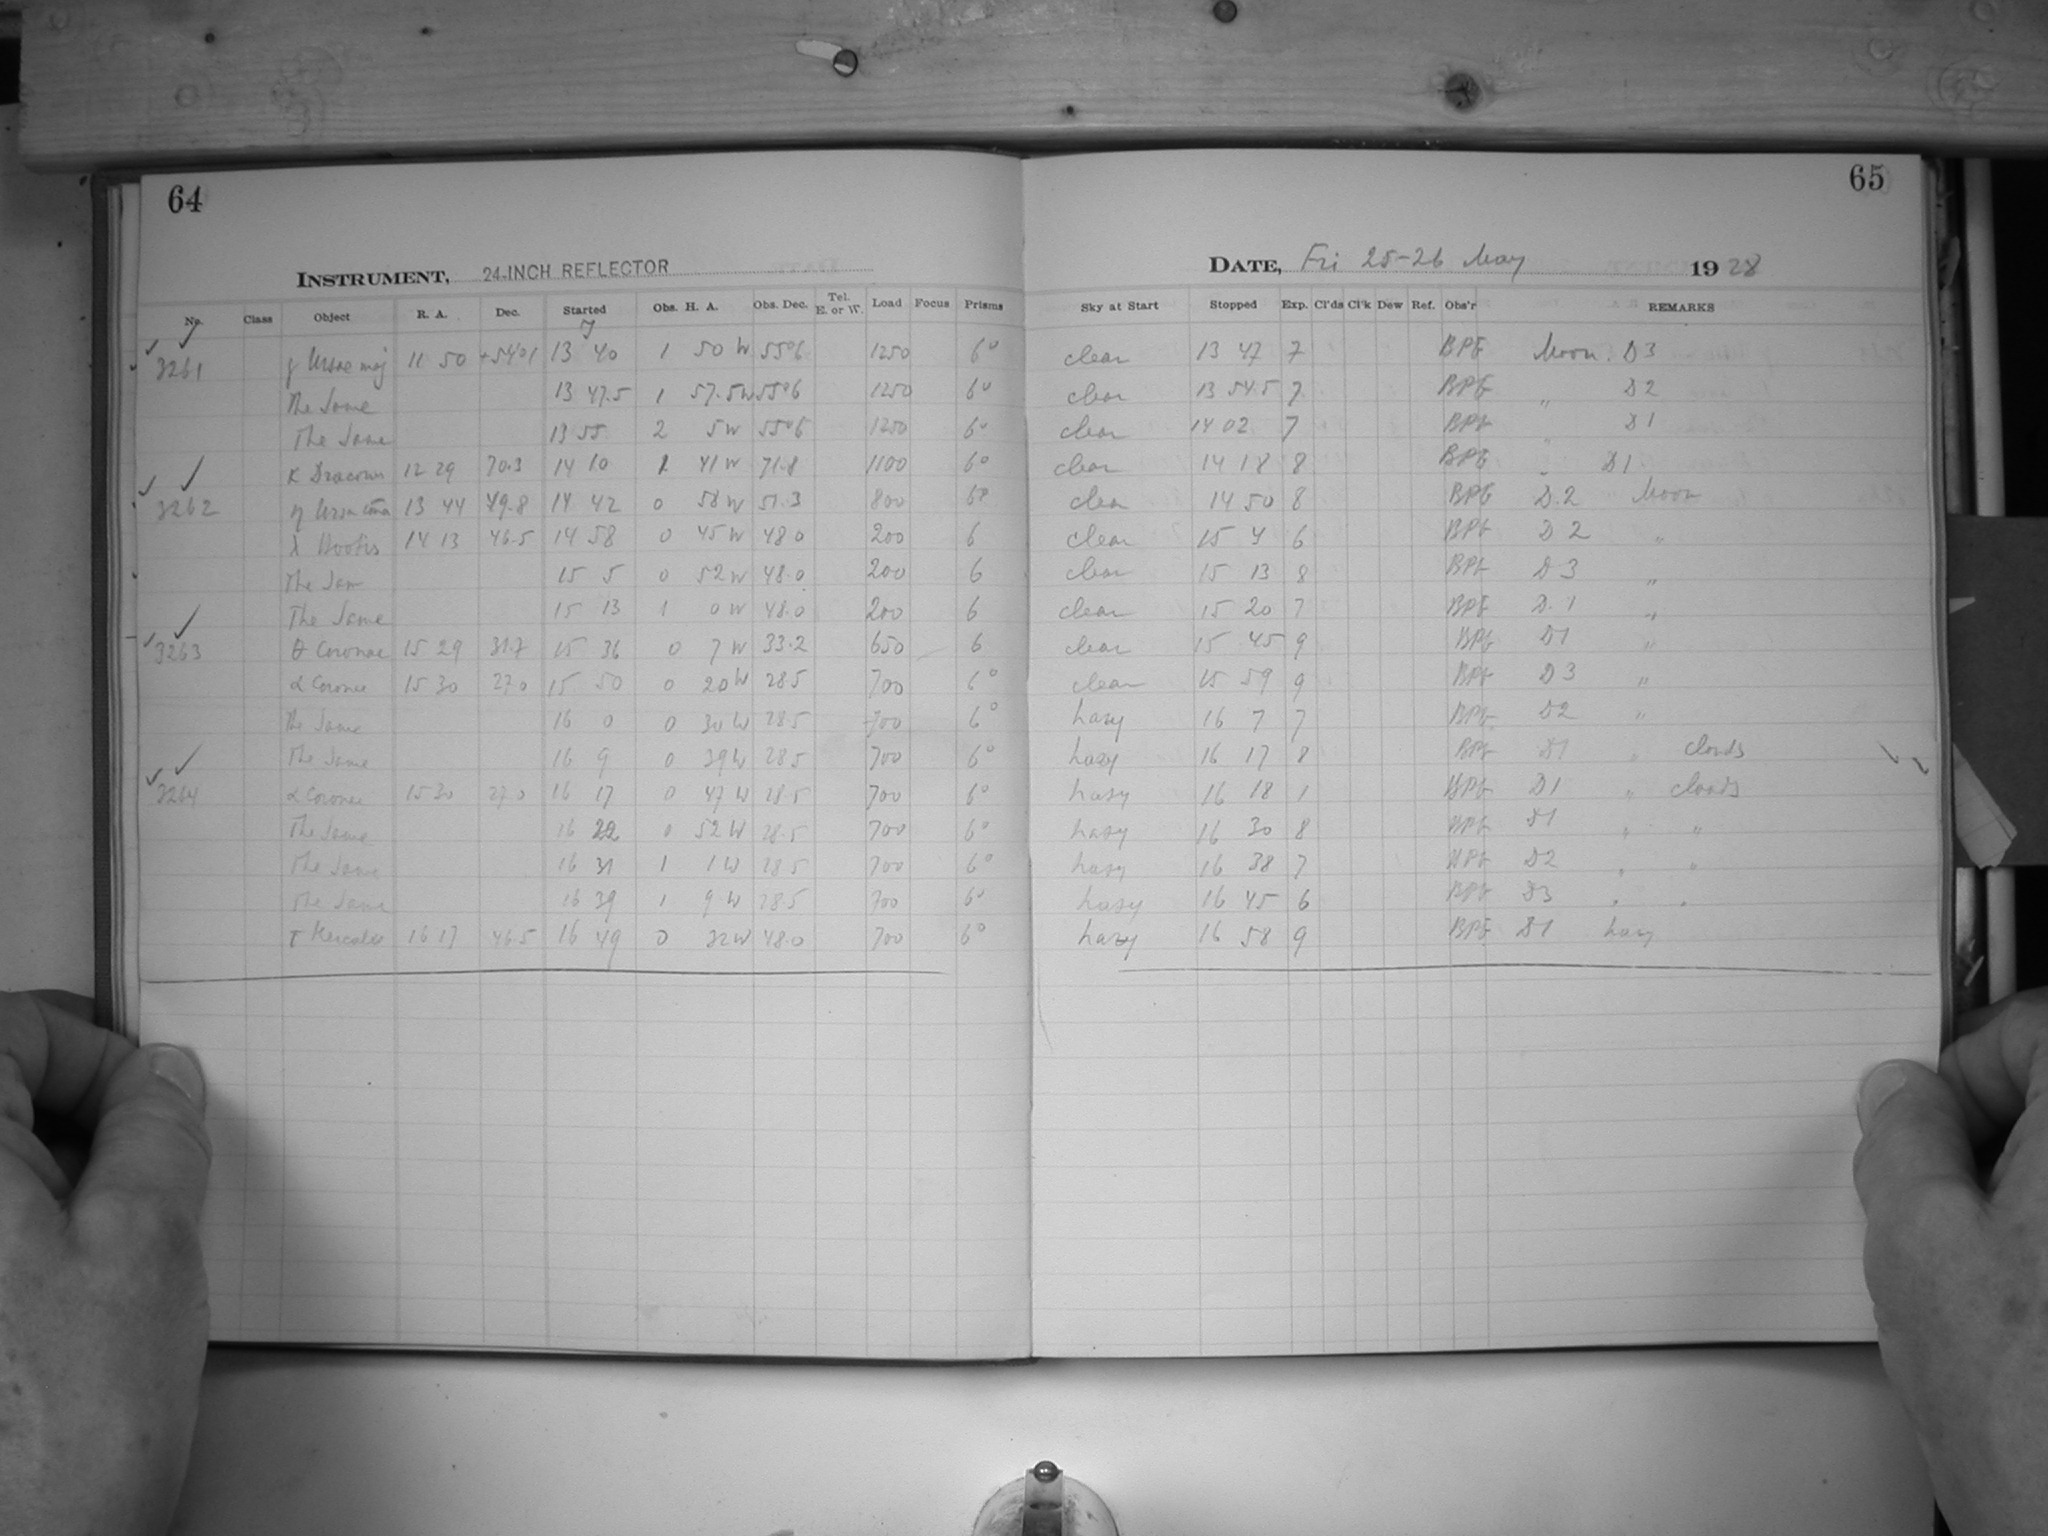 64
INSTRUMENT, 24-INCH REFLECTOR
No. Class Object R. A. Dec. Started Obs. H. A. Obs. Dec. Tel. E. or W. Load Focus Prisms
3261 γ Ursae maj 11 50 +54°1 13 40 1 50 W 55°6 1250 6°
The Same 13 47.5 1 57.5W 55°6 1250 6°
The Same 13 55 2 5W 55°6 1250 6°
K Draconis 12 29 70.3 14 10 1 41W 71.8 1100 6°
3262 η Ursa 13 44 49.8 14 42 0 58W 51.3 800 6°
λ Bootis 14 13 46.5 14 58 0 45W 48.0 200 6
The Sam 15 5 0 52W 48.0 200 6
The Same 15 13 1 0W 48.0 200 6
3263 θ Coronae 15 29 31.7 15 36 0 7W 33.2 650 6
α Coronae 15 30 27.0 15 50 0 20W 28.5 700 6°
The Same 16 0 0 30W 28.5 700 6°
The Same 16 9 0 39W 28.5 700 6°
3264 α Coronae 15 30 27.0 16 17 0 47W 28.5 700 6°
The Same 16 22 0 52W 28.5 700 6°
The Same 16 31 1 1W 28.5 700 6°
The Same 16 39 1 9W 28.5 700 6°
τ Herculis 16 17 46.5 16 49 0 32W 48.0 700 6°
65
DATE, Fri 25-26 May 1928
Sky at Start Stopped Exp. Cl'ds Cl'k Dew Ref. Obs'r REMARKS
clear 13 47 7 BPG Moon. D3
clear 13 54.5 7 BPG " D2
clear 14 02 7 BPG " D1
clear 14 18 8 BPG " D1
clear 14 50 8 BPG D.2 Moon
clear 15 4 6 BPG D2 "
clear 15 13 8 BPG D3 "
clear 15 20 7 BPG D.1 "
clear 15 45 9 BPG D1 "
clear 15 59 9 BPG D3 "
hazy 16 7 7 BPG D2 "
hazy 16 17 8 BPG D1 " clouds
hazy 16 18 1 BPG D1 " clouds
hazy 16 30 8 BPG D1 " "
hazy 16 38 7 BPG D2 " "
hazy 16 45 6 BPG D3 " "
hazy 16 58 9 BPG D1 hazy